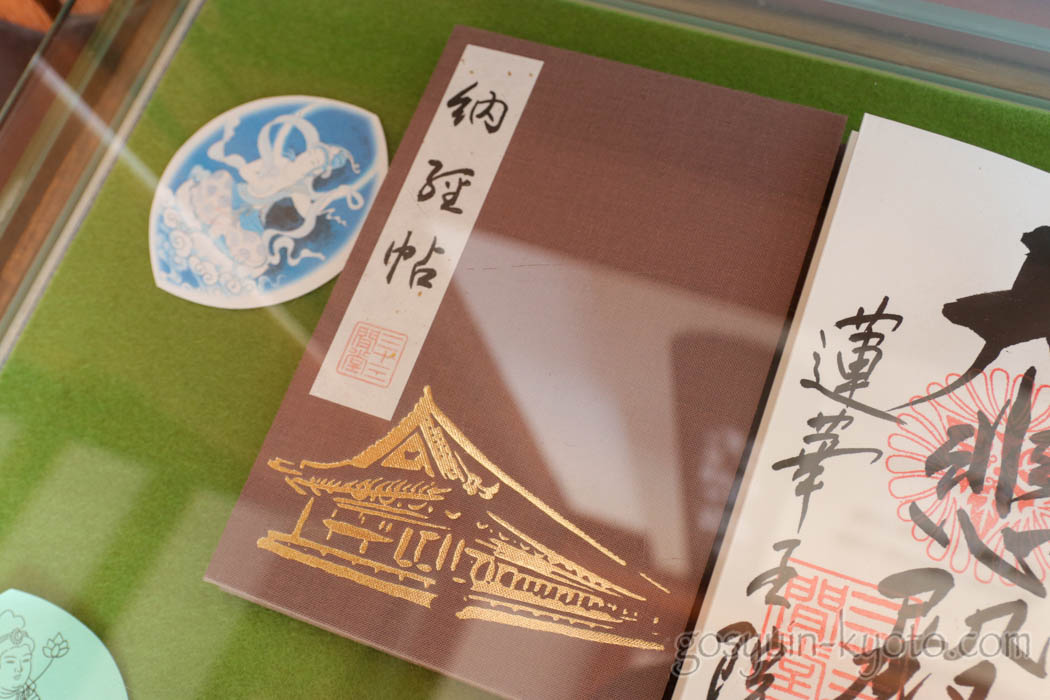 納經帖
三十三間堂
大悲殿
蓮華王院
gosyuin-kyoto.com